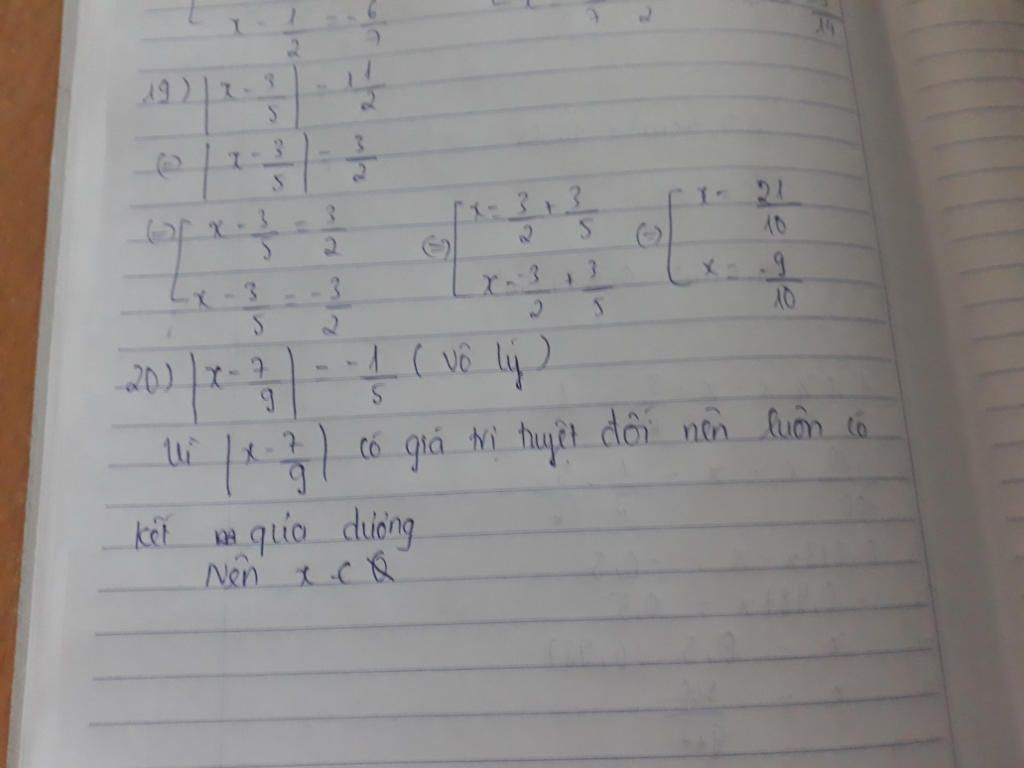 x - 1/2 = -6/7
7 2
14
19) |x - 3/5| = 1 1/2
(=) |x - 3/5| = 3/2
(=) [ x - 3/5 = 3/2 (=) [ x = 3/2 + 3/5 (=) [ x = 21/10
x - 3/5 = -3/2 x = -3/2 + 3/5 x = -9/10
20) |x - 7/9| = -1/5 (vô lý)
Vì |x - 7/9| có giá trị tuyệt đối nên luôn có
kết quả dương
Nên x